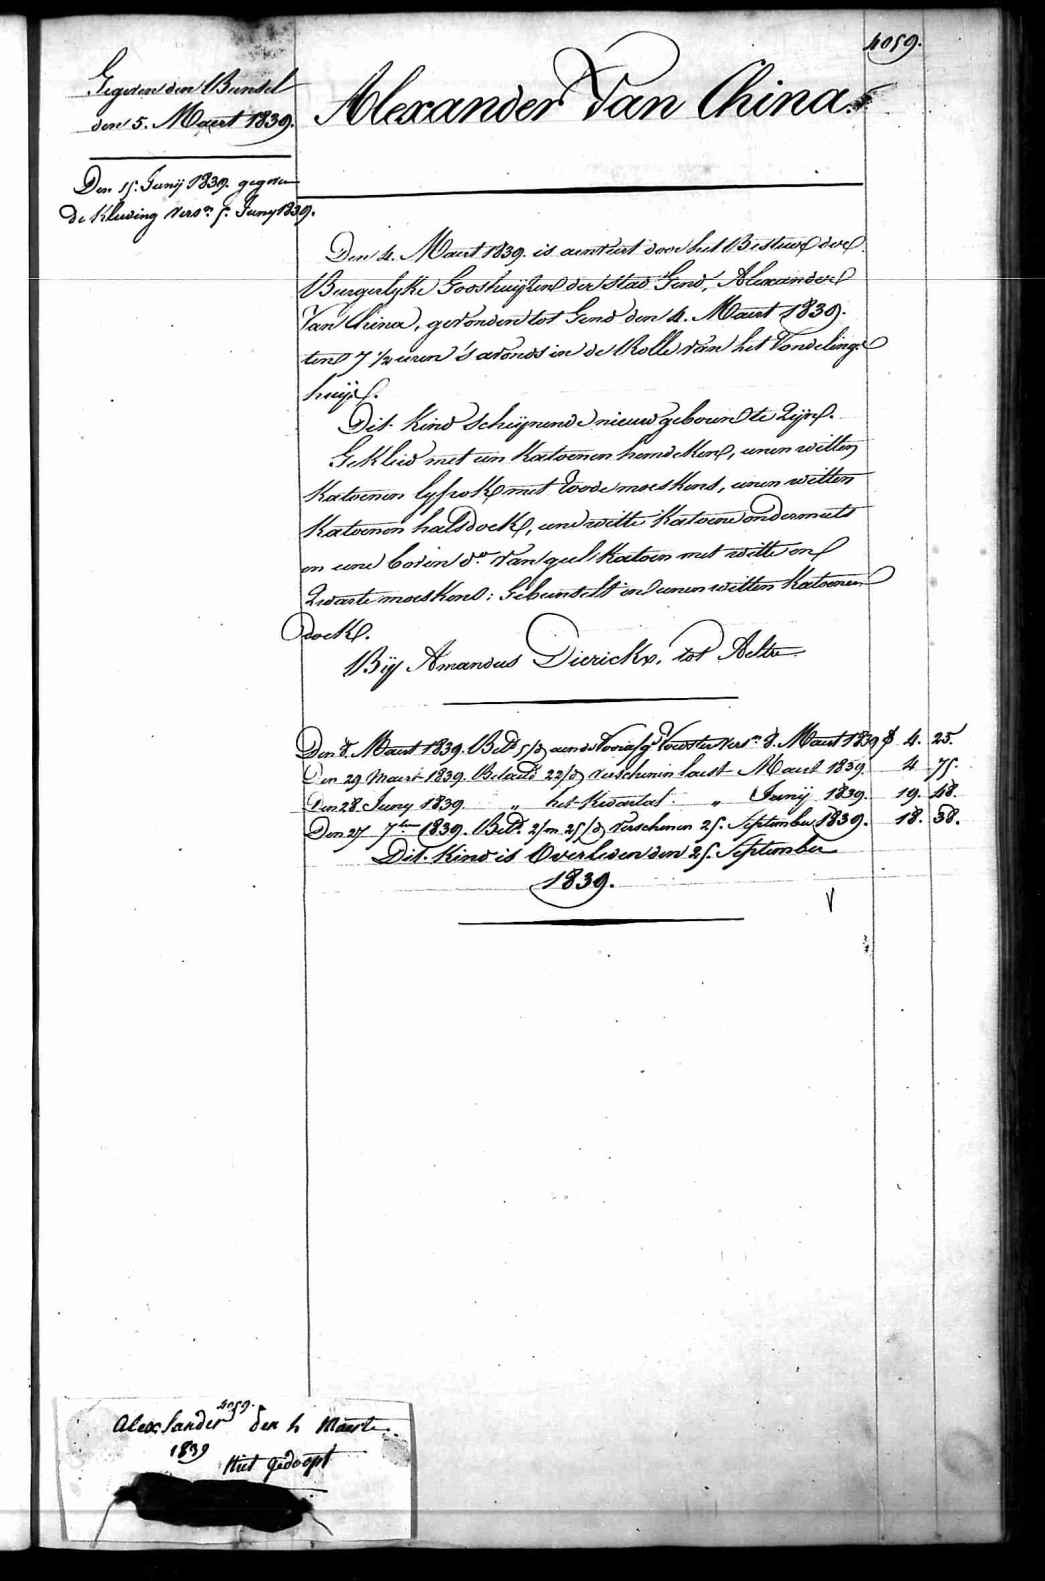 4059.
Gegeven den Bunsel
den 5. Maert 1839.
Alexander Van China.
Den 15. Junij 1839. gegeven
de Kleeding vers.n 5. Juny 1839.
Den 4. Maert 1839. is aenveert door het Bestuer der
Burgerlyke Godshuijzen der Stad Gend, Alexander
Van China, gevonden tot Gend den 4. Maert 1839.
ten 7 1/2 uren 's avonds in de Rolle van het Vondeling
huijs.
Dit Kind scheijnende nieuw geboren te zijn.
Gekleed met een Katoenen hemdeken, eenen witten
Katoenen lyfrok met roode moeskens, eenen witten
Katoenen halsdoek, eene witte Katoene ondermuts
en eene boven d.o van geel Katoen met witte en
Zwarte moeskens: Gebunselt in eenen witten Katoenen
doek.
Bij Amandus Dierickx, tot Aeltre
Den 8. Maert 1839. Bet.d 5/d aen de Voorafg.e Voedster vers.n 8. Maert 1839 4. 25.
Den 29 Maert 1839. Betaeld 22/d verschenen laest Maert 1839. 4 75.
Den 28 Juny 1839 „ het Kwartael „ Junij 1839. 19. 48.
Den 27 7ber 1839. Bet.d 2/m 25/d verschenen 25. September 1839. 18. 38.
Dit Kind is Overleden den 25. September
1839.
4059.
Alexsander den 4 Maerte
1839
Niet gedoopt